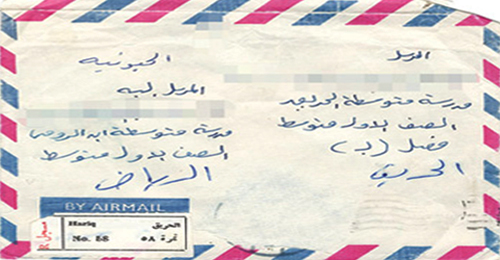 المرسل
مدرسة متوسطة الحريق
الصف الاول متوسط
فصل (ب)
الحريق
المرسل اليه
مدرسة متوسطة ابن الرومي
الصف الاول متوسط
الرياض
BY AIRMAIL
Hariq الحريق
No. 58 نمرة ٥٨
مسجل